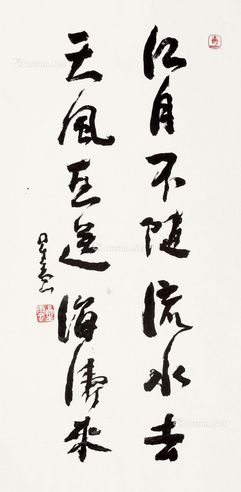 江月不随流水去
天风直送海涛来
星云